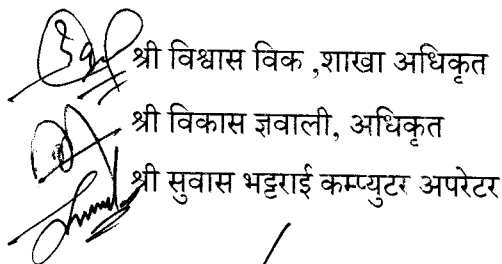 श्री विश्वास विक ,शाखा अधिकृत
श्री विकास ज्ञवाली, अधिकृत
श्री सुवास भट्टराई कम्प्युटर अपरेटर